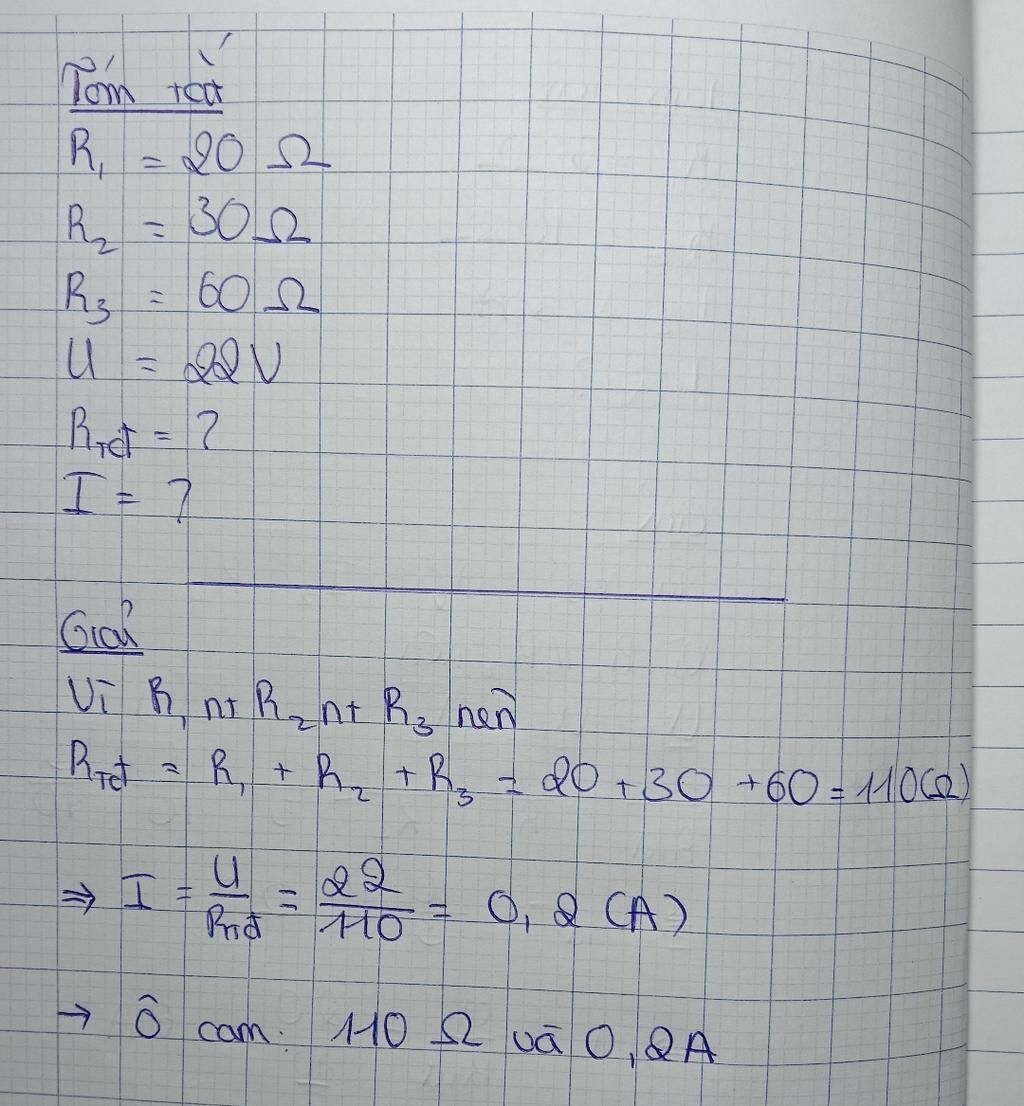 Tóm tắt
R₁ = 20 Ω
R₂ = 30 Ω
R₃ = 60 Ω
U = 22V
Rtđ = ?
I = ?
Giải
Vì R₁ nt R₂ nt R₃ nên
Rtđ = R₁ + R₂ + R₃ = 20 + 30 + 60 = 110(Ω)
⇒ I = U/Rtđ = 22/110 = 0,2 (A)
→ Ô cam: 110 Ω và 0,2A